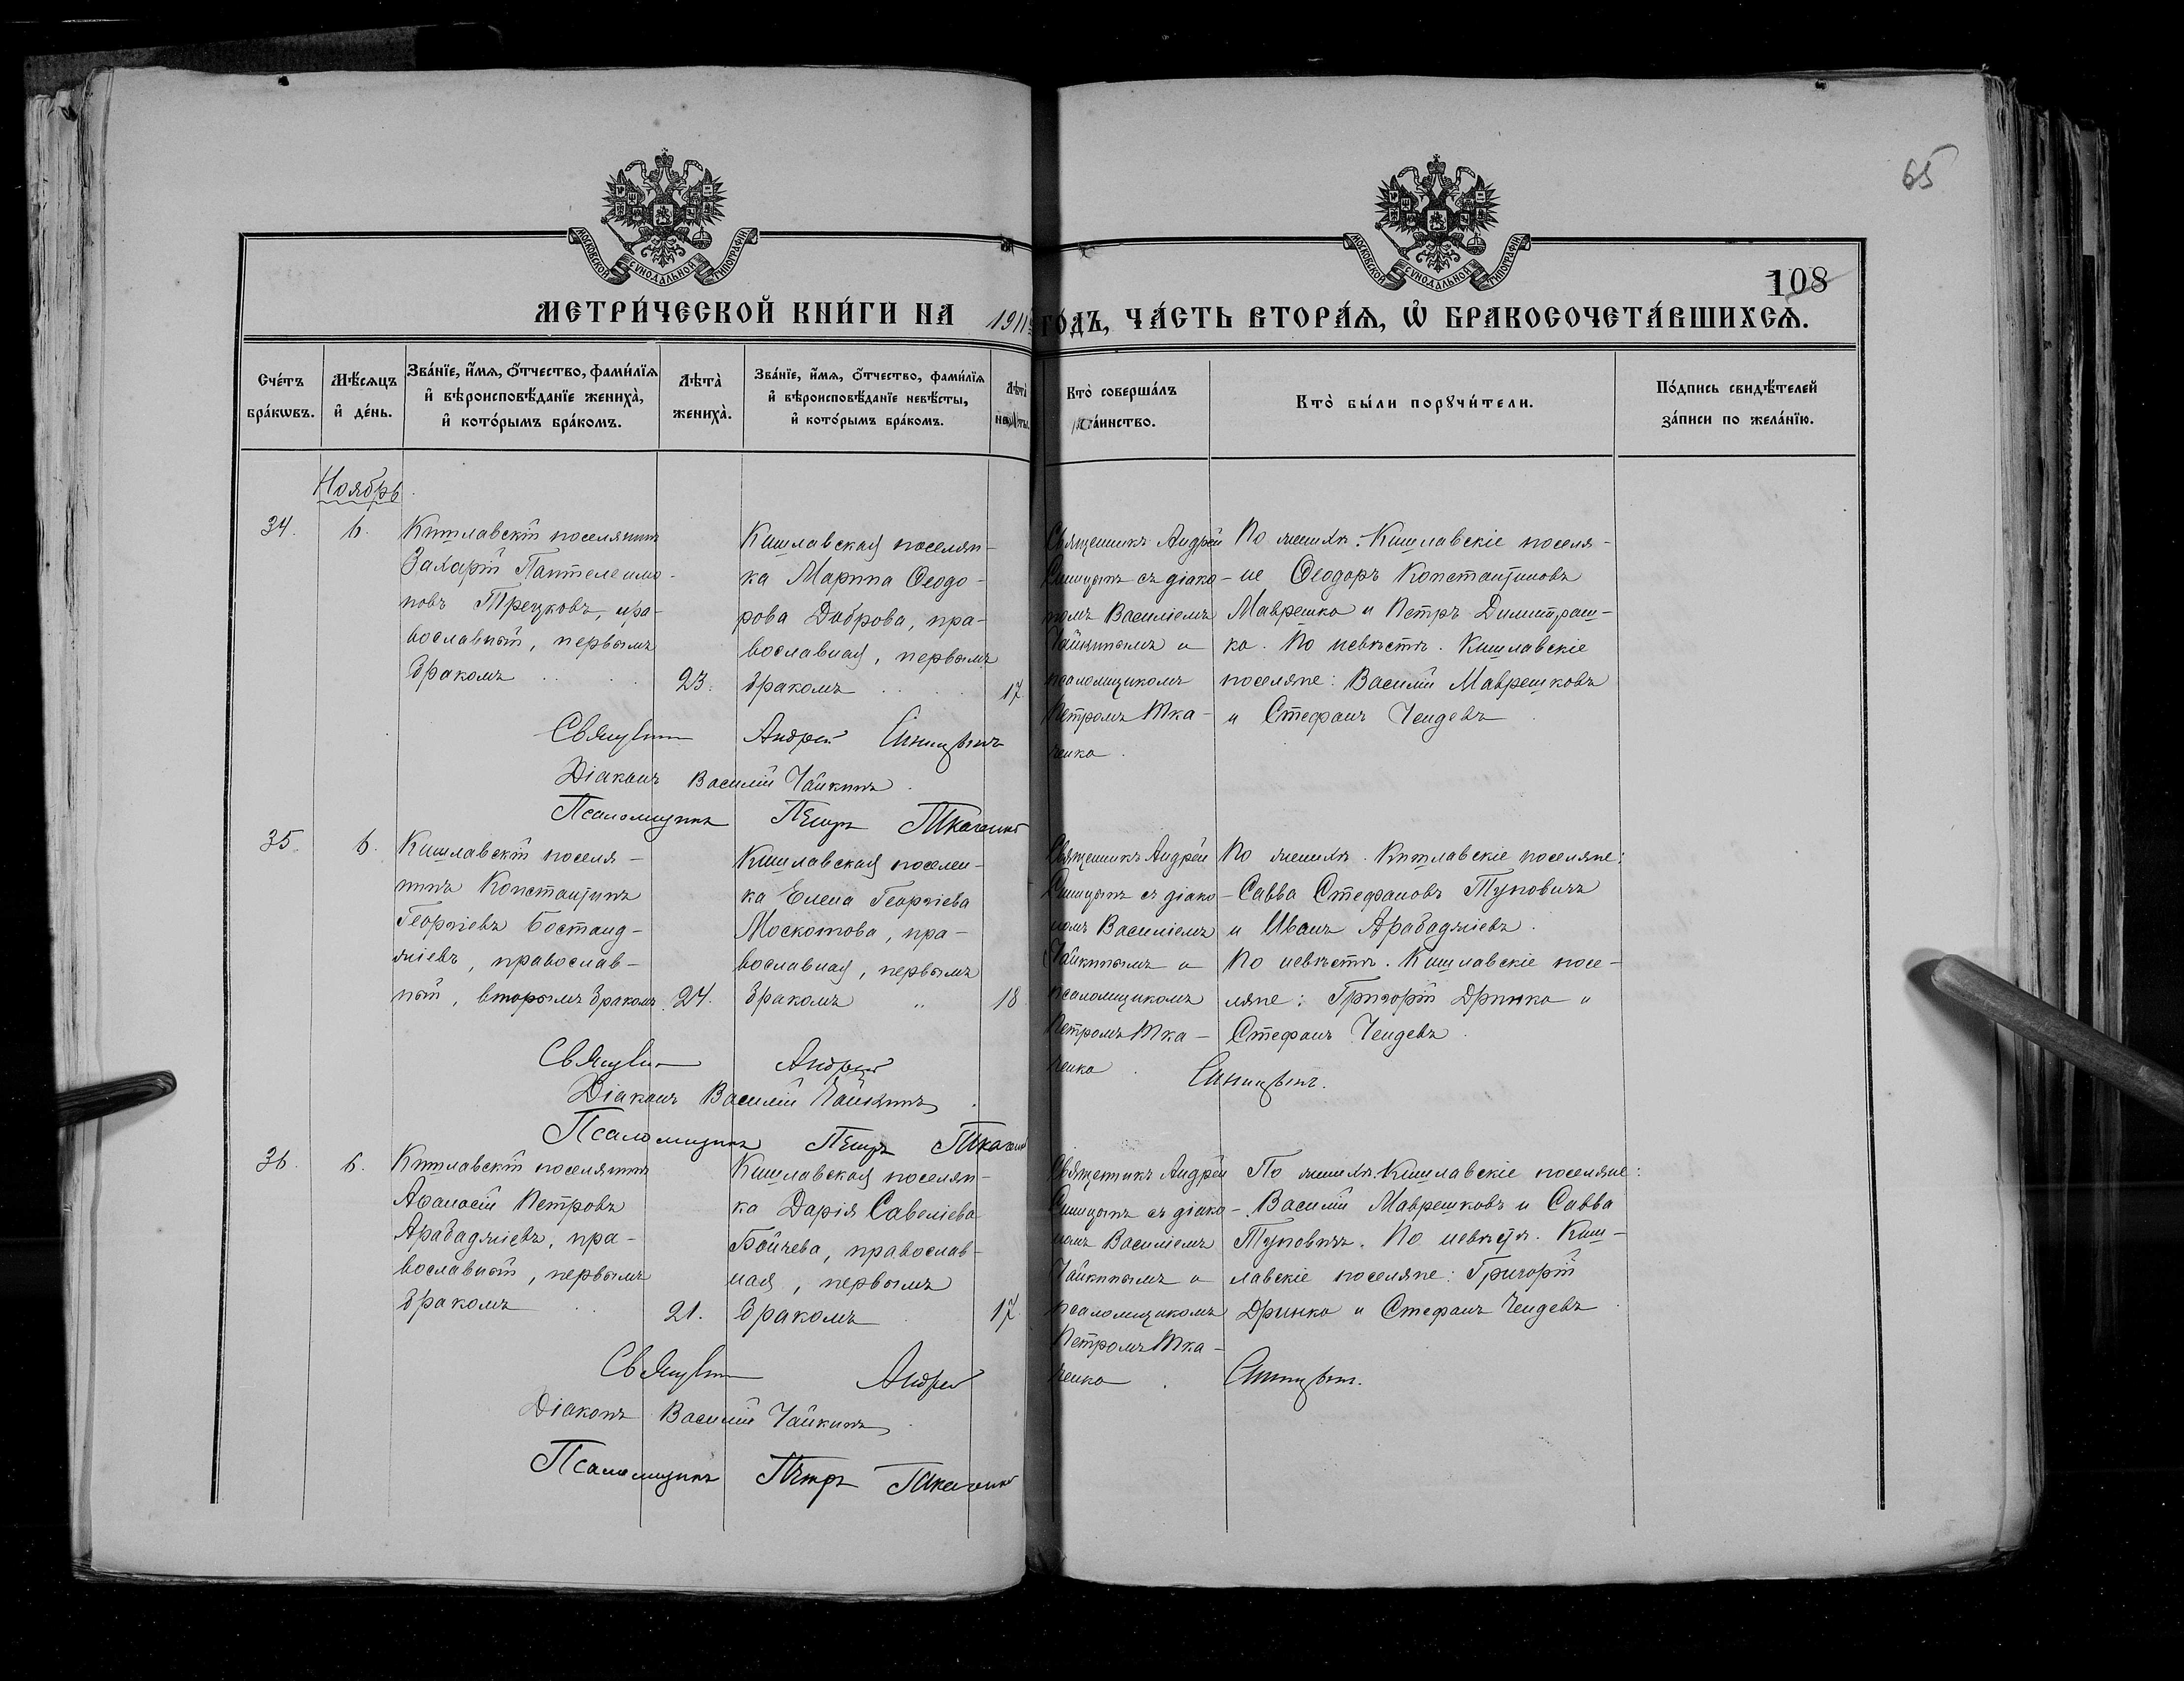 65
МОСКОВСКОЙ СУНОДАЛЬНОЙ ТИПОГРАФІИ
МОСКОВСКОЙ СУНОДАЛЬНОЙ ТИПОГРАФІИ
108
МЕТРИ́ЧЕСКОЙ КНИ́ГИ НА 1911 ГО́ДЪ, ЧА́СТЬ ВТОРА́Ѧ, Ѡ҆ БРАКОСОЧЕТА́ВШИХСѦ.
Сче́тъ бра́кѡвъ.
Мѣ́сѧцъ и҆ де́нь.
Зва́нїе, и҆́мѧ, ѻ҆́тчество, фами́лїѧ
и҆ вѣроисповѣ́данїе жениха̀,
и҆ кото́рымъ бра́комъ.
Лѣта̀ жениха̀.
Зва́нїе, и҆́мѧ, ѻ҆́тчество, фами́лїѧ
и҆ вѣроисповѣ́данїе невѣ́сты,
и҆ кото́рымъ бра́комъ.
Лѣта̀
Кто̀ соверша́лъ
та́инство.
Кто̀ бы́ли порꙋчи́тели.
По́дпись свидѣ́телей
за́писи по жела́нїю.
Ноябрь
34.
6.
Кишлавскій поселянинъ
Захарій Пантелеимо-
новъ Трецковъ, пра-
вославный, первымъ
бракомъ
23.
Кишлавская поселян-
ка Марина Ѳеодо-
рова Доброва, пра-
вославная, первымъ
бракомъ
17
Священникъ Андрей
Синицынъ съ діако-
номъ Василіемъ
Чайкинымъ и
псаломщикомъ
Петромъ Тка-
ченко.
По женихѣ: Кишлавскіе поселя-
не Ѳеодоръ Константиновъ
Маврешко и Петръ Димитраш-
ко. По невѣстѣ. Кишлавскіе
поселяне: Василій Маврешковъ
и Стефанъ Чендевъ
Андрей Синицынъ
Діаконъ Василій Чайкинъ.
Псаломщикъ Петръ Ткаченко
35.
6.
Кишлавскій поселя-
нинъ Константинъ
Георгіевъ Бостанд-
жіевъ, православ-
ный, вторымъ бракомъ.
24.
Кишлавская поселен-
ка Елена Георгіева
Москотова, пра-
вославная, первымъ
бракомъ "
18
Священникъ Андрей
Синицынъ съ діако-
номъ Василіемъ
Чайкинымъ и
псаломщикомъ
Петромъ Тка-
ченко.
По женихѣ. Кишлавскіе поселяне:
Савва Стефановъ Туковичъ
и Иванъ Арабаджіевъ.
По невѣстѣ. Кишлавскіе посе-
ляне: Григорій Дринко и
Стефанъ Чендевъ.
Андрей Синицынъ.
Діаконъ Василій Чайкинъ.
Псаломщикъ Петръ Ткаченко
36.
6.
Кишлавскій поселянинъ
Аѳанасій Петровъ
Арабаджіевъ, пра-
вославный, первымъ
бракомъ
21.
Кишлавская поселян-
ка Дарія Савеліева
Бойчева, православ-
ная, первымъ
бракомъ
17.
Священникъ Андрей
Синицынъ съ діако-
номъ Василіемъ
Чайкинымъ и
псаломщикомъ
Петромъ Тка-
ченко.
По женихѣ. Кишлавскіе поселяне:
Василій Маврешковъ и Савва
По невѣстѣ. Киш-
лавскіе поселяне: Григорій
Дринко и Стефанъ Чендевъ.
Андрей Синицынъ.
Діаконъ Василій Чайкинъ.
Псаломщикъ Петръ Ткаченко